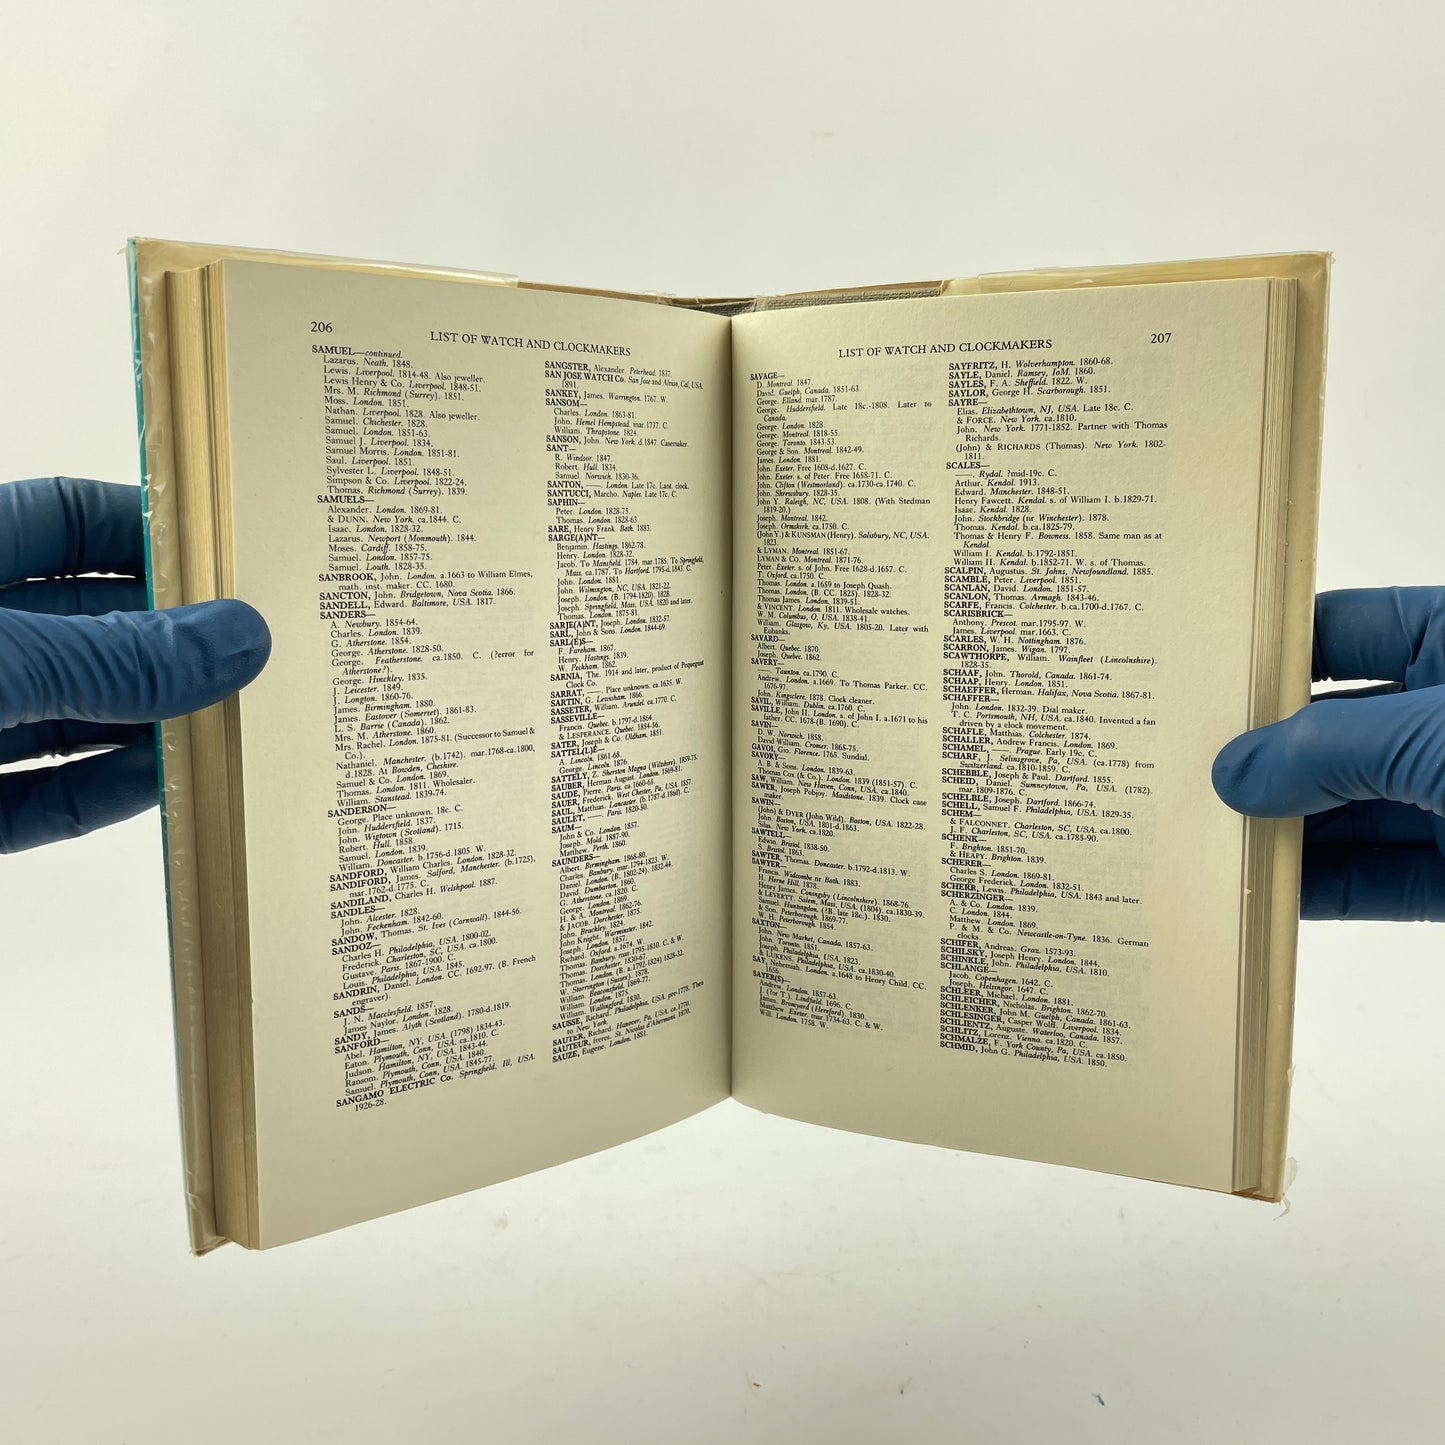 206
LIST OF WATCH AND CLOCKMAKERS
SAMUEL—continued.
Lazarus. Neath. 1848.
Lewis. Liverpool. 1814-48. Also jeweller.
Lewis Henry & Co. Liverpool. 1848-51.
Mrs. M. Richmond (Surrey). 1851.
Moss. London. 1851.
Nathan. Liverpool. 1828. Also jeweller.
Samuel. Chichester. 1828.
Samuel. London. 1851-63.
Samuel J. Liverpool. 1834.
Samuel Morris. London. 1851-81.
Saul. Liverpool. 1851.
Sylvester L. Liverpool. 1848-51.
Simpson & Co. Liverpool. 1822-24.
Thomas. Richmond (Surrey). 1839.
SAMUELS—
Alexander. London. 1869-81.
& DUNN. New York. ca.1844. C.
Isaac. London. 1828-32.
Lazarus. Newport (Monmouth). 1844.
Moses. Cardiff. 1858-75.
Samuel. London. 1857-75.
Samuel. Louth. 1828-35.
SANBROOK, John. London. a.1663 to William Elmes,
math. inst. maker. CC. 1680.
SANCTON, John. Bridgetown, Nova Scotia. 1866.
SANDELL, Edward. Baltimore, USA. 1817.
SANDERS—
A. Newbury. 1854-64.
Charles. London. 1839.
G. Atherstone. 1854.
George. Atherstone. 1828-50.
George. Featherstone. ca.1850. C. (?error for
Atherstone?).
George. Hinckley. 1835.
J. Leicester. 1849.
J. Longton. 1860-76.
James. Birmingham. 1880.
James. Eastover (Somerset). 1861-83.
L. S. Barrie (Canada). 1862.
Mrs. M. Atherstone. 1860.
Mrs. Rachel. London. 1875-81. (Successor to Samuel &
Co.).
Nathaniel. Manchester. (b.1742). mar.1768-ca.1800,
d.1828. At Bowden, Cheshire.
Samuel & Co. London. 1869.
Thomas. London. 1811. Wholesaler.
William. Stanstead. 1839-74.
SANDERSON—
George. Place unknown. 18c. C.
John. Huddersfield. 1837.
John. Wigtown (Scotland). 1715.
Robert. Hull. 1858.
Samuel. London. 1839.
William. Doncaster. b.1756-d.1805. W.
SANDFORD, William Charles. London. 1828-32.
SANDIFORD, James. Salford, Manchester. (b.1725),
mar.1762-d.1775. C.
SANDILAND, Charles H. Welshpool. 1887.
SANDLES—
John. Alcester. 1828.
John. Feckenham. 1842-60.
SANDOW, Thomas. St. Ives (Cornwall). 1844-56.
SANDOZ—
Charles H. Philadelphia, USA. 1800-02.
Frederick. Charleston, SC, USA. ca.1800.
Gustave. Paris. 1867-1900. C.
Louis. Philadelphia, USA. 1845.
SANDRIN, Daniel. London. CC. 1692-97. (B. French
engraver).
SANDS—
J. N. Macclesfield. 1857.
James Naylor. London. 1828.
SANDY, James. Alyth (Scotland). 1780-d.1819.
SANFORD—
Abel. Hamilton, NY, USA. (1798) 1834-43.
Eaton. Plymouth, Conn, USA. ca.1810. C.
Judson. Hamilton, NY, USA. 1843-44.
Ransom. Plymouth, Conn, USA. 1840.
Samuel. Plymouth, Conn, USA. 1845-77.
SANGAMO ELECTRIC Co. Springfield, Ill, USA.
1926-28.
SANGSTER, Alexander. Peterhead. 1837.
SAN JOSE WATCH Co. San Jose and Alviso, Cal, USA.
1891.
SANKEY, James. Warrington. 1767. W.
SANSOM—
Charles. London. 1863-81.
John. Hemel Hempstead. mar.1737. C.
William. Thrapstone. 1824.
SANSON, John. New York. d.1847. Casemaker.
SANT—
R. Windsor. 1847.
Robert. Hull. 1834.
Samuel. Norwich. 1830-36.
SANTON, ——. London. Late 17c. Lant. clock.
SANTUCCI, Marcho. Naples. Late 17c. C.
SAPHIN—
Peter. London. 1828-75.
Thomas. London. 1828-63.
SARE, Henry Frank. Bath. 1883.
SARGE(A)NT—
Benjamin. Hastings. 1862-78.
Henry. London. 1828-32.
Jacob. To Mansfield. 1784. mar.1785. To Springfield,
Mass. ca.1787. To Hartford. 1795-d.1843. C.
John. London. 1881.
John. Wilmington, NC, USA. 1821-22.
Joseph. London. (B. 1794-1820). 1828.
Joseph. Springfield, Mass, USA. 1820 and later.
Thomas. London. 1875-81.
SARJE(A)NT, Joseph. London. 1832-57.
SARL, John & Sons. London. 1844-69.
SARL(E)S—
F. Fareham. 1867.
Henry. Hastings. 1839.
W. Peckham. 1862.
SARNIA, The. 1914 and later, product of Pequegnat
Clock Co.
SARRAT, ——. Place unknown. ca.1635. W.
SARTIN, G. Lewisham. 1866.
SASSETER, William. Arundel. ca.1770. C.
SASSEVILLE—
Francis. Quebec. b.1797-d.1864.
& LESPERANCE. Quebec. 1854-56.
SATER, Joseph & Co. Oldham. 1851.
SATTEL(L)E—
A. Lincoln. 1861-68.
George. Lincoln. 1876.
SATTELY, Z. Sherston Magna (Wiltshire). 1859-75.
SAUBER, Herman August. London. 1869-81.
SAUDE, Pierre. Paris. ca.1660-65.
SAUER, Frederick. West Chester, Pa, USA. 1857.
SAUL, Matthias. Lancaster. (b.1787-d.1860). C.
SAULET, ——. Paris. 1820-50.
SAUM—
John & Co. London. 1857.
Joseph. Mold. 1887-90.
Matthew. Perth. 1860.
SAUNDERS—
Albert. Birmingham. 1868-80.
Charles. Banbury. mar.1794-1823. W.
Daniel. London. (B. 1802-24). 1832-44.
David. Dumbarton. 1860.
G. Atherstone. ca.1820. C.
George. London. 1869.
H. & A. Montreal. 1862-76.
& JACOB. Dorchester. 1875.
John. Brackley. 1824.
John Knight. Warminster. 1842.
Joseph. London. 1857.
Richard. Oxford. a.1674. W.
Thomas. Banbury. mar.1795-1810. C. & W.
Thomas. Dorchester. 1830-67.
Thomas. London. (B. a.1792-1824) 1828-32.
W. Storrington (Sussex). 1878.
William. Beaconsfield. 1869-77.
William. London. 1875.
William. Wallingford. 1830.
SAUSSE, Richard. Philadelphia, USA. pre-1778. Then
to New York.
SAUTER, Richard. Hanover, Pa, USA. ca.1770.
SAUTEUR, freres. St. Nicolas d'Aliermont. 1870.
SAUZE, Eugene. London. 1881.
LIST OF WATCH AND CLOCKMAKERS
207
SAVAGE—
D. Montreal. 1847.
David. Guelph, Canada. 1851-63.
George. Elland. mar.1787.
George. Huddersfield. Late 18c.-1808. Later to
Canada.
George. London. 1828.
George. Montreal. 1818-55.
George. Toronto. 1843-53.
George & Son. Montreal. 1842-49.
James. London. 1881.
John. Exeter. Free 1608-d.1627. C.
John. Exeter. s. of Peter. Free 1658-71. C.
John. Clifton (Westmorland). ca.1730-ca.1740. C.
John. Shrewsbury. 1828-35.
John Y. Raleigh, NC, USA. 1808. (With Stedman
1819-20.)
Joseph. Montreal. 1842.
Joseph. Ormskirk. ca.1750. C.
(John Y.) & KUNSMAN (Henry). Salisbury, NC, USA.
1823.
& LYMAN. Montreal. 1851-67.
LYMAN & Co. Montreal. 1868-76.
Peter. Exeter. s. of John. Free 1628-d.1657. C.
T. Oxford. ca.1750. C.
Thomas. London. a.1659 to Joseph Quash.
Thomas. London. (B. CC. 1825). 1828-32.
Thomas James. London. 1839-51.
& VINCENT. London. 1811. Wholesale watches.
W. M. Columbus, O, USA. 1838-41.
William. Glasgow, Ky, USA. 1805-20. Later with
Eubanks.
SAVARD—
Albert. Quebec. 1870.
Joseph. Quebec. 1862.
SAVERY—
——. Taunton. ca.1790. C.
Andrew. London. a.1669. To Thomas Parker. CC.
1676-97.
John. Kingsclere. 1878. Clock cleaner.
SAVIL, William. Dublin. ca.1760. C.
SAVILLE, John II. London. s. of John I. a.1671 to his
father. CC. 1678-(B. 1690). C.
SAVIN—
D. W. Norwich. 1858.
David William. Cromer. 1865-75.
GAVOI, Gio. Florence. 1765. Sundial.
SAVORY—
A. B. & Sons. London. 1839-63.
Thomas Cox (& Co.). London. 1839 (1851-57). C.
SAW, William. New Haven, Conn, USA. ca.1840.
SAWER, Joseph Pobjoy. Maidstone. 1839. Clock case
maker.
SAWIN—
(John) & DYER (John Wild). Boston, USA. 1822-28.
John. Boston, USA. 1801-d.1863.
Silas. New York. ca.1820.
SAWTELL—
Edwin. Bristol. 1838-50.
S. Bristol. 1863.
SAWTER, Thomas. Doncaster. b.1792-d.1813. W.
SAWYER—
Francis. Widcombe nr Bath. 1883.
H. Herne Hill. 1878.
Henry James. Coningsby (Lincolnshire). 1868-76.
& LEVERTT. Salem, Mass, USA. (1804). ca.1830-39.
Samuel. Huntingdon. (?B. late 18c.). 1830.
& Son. Peterborough. 1869-77.
W. H. Peterborough. 1854.
SAXTON—
John. New Market, Canada. 1857-63.
John. Toronto. 1851.
Joseph. Philadelphia, USA. 1823.
& LUKENS. Philadelphia, USA. ca.1830-40.
SAY, Nehemiah. London. a.1648 to Henry Child. CC.
1656.
SAYER(S)—
Andrew. London. 1857-63.
J. (?or T.). Lindfield. 1696. C.
James. Bromyard (Hereford). 1830.
Matthew. Exeter. mar.1734-63. C. & W.
Will. London. 1758. W.
SAYFRITZ, H. Wolverhampton. 1860-68.
SAYLE, Daniel. Ramsey, IoM. 1860.
SAYLES, F. A. Sheffield. 1822. W.
SAYLOR, George H. Scarborough. 1851.
SAYRE—
Elias. Elizabethtown, NJ, USA. Late 18c. C.
& FORCE. New York. ca.1810.
John. New York. 1771-1852. Partner with Thomas
Richards.
(John) & RICHARDS (Thomas). New York. 1802-
1811.
SCALES—
——. Rydal. ?mid-19c. C.
Arthur. Kendal. 1913.
Edward. Manchester. 1848-51.
Henry Fawcett. Kendal. s. of William I. b.1829-71.
Isaac. Kendal. 1828.
John. Stockbridge (nr Winchester). 1878.
Thomas. Kendal. b.ca.1825-79.
Thomas & Henry F. Bowness. 1858. Same man as at
Kendal.
William I. Kendal. b.1792-1851.
William II. Kendal. b.1852-71. W. s. of Thomas.
SCALPIN, Augustus. St. Johns, Newfoundland. 1885.
SCAMBLE, Peter. Liverpool. 1851.
SCANLAN, David. London. 1851-57.
SCANLON, Thomas. Armagh. 1843-46.
SCARFE, Francis. Colchester. b.ca.1700-d.1767. C.
SCARISBRICK—
Anthony. Prescot. mar.1795-97. W.
James. Liverpool. mar.1663. C.
SCARLES, W. H. Nottingham. 1876.
SCARRON, James. Wigan. 1797.
SCAWTHORPE, William. Wainfleet (Lincolnshire).
1828-35.
SCHAAF, John. Thorold, Canada. 1861-74.
SCHAAP, Henry. London. 1851.
SCHAEFFER, Herman. Halifax, Nova Scotia. 1867-81.
SCHAFFER—
John. London. 1832-39. Dial maker.
T. C. Portsmouth, NH, USA. ca.1840. Invented a fan
driven by a clock movement.
SCHAFLE, Matthias. Colchester. 1874.
SCHALLER, Andrew Francis. London. 1869.
SCHAMEL, ——. Prague. Early 19c. C.
SCHARF, J. Selinsgrove, Pa, USA. (ca.1778) from
Switzerland. ca.1810-1859. C.
SCHEBBLE, Joseph & Paul. Dartford. 1855.
SCHEID, Daniel. Sumneytown, Pa, USA. (1782).
mar.1809-1876. C.
SCHELBLE, Joseph. Dartford. 1866-74.
SCHELL, Samuel F. Philadelphia, USA. 1829-35.
SCHEM—
& FALCONNET. Charleston, SC, USA. ca.1800.
J. F. Charleston, SC, USA. ca.1785-90.
SCHENK—
F. Brighton. 1851-70.
& HEAPY. Brighton. 1839.
SCHERER—
Charles S. London. 1869-81.
George Frederick. London. 1832-51.
SCHERR, Lewis. Philadelphia, USA. 1843 and later.
SCHERZINGER—
A. & Co. London. 1839.
C. London. 1844.
Matthew. London. 1869.
P. & M. & Co. Newcastle-on-Tyne. 1836. German
clocks.
SCHIFER, Andreas. Graz. 1573-93.
SCHILSKY, Joseph Henry. London. 1844.
SCHINKLE, John. Philadelphia, USA. 1810.
SCHLANGE—
Jacob. Copenhagen. 1642. C.
Joseph. Helsingor. 1647. C.
SCHLEER, Michael. London. 1881.
SCHLEICHER, Nicholas. Brighton. 1862-70.
SCHLENKER, John M. Guelph, Canada. 1861-63.
SCHLESINGER, Casper Wolff. Liverpool. 1834.
SCHLIENTZ, Auguste. Waterloo, Canada. 1857.
SCHLITZ, Lorenz. Vienna. ca.1820. C.
SCHMALZE, F. York County, Pa, USA. ca.1850.
SCHMID, John G. Philadelphia, USA. 1850.